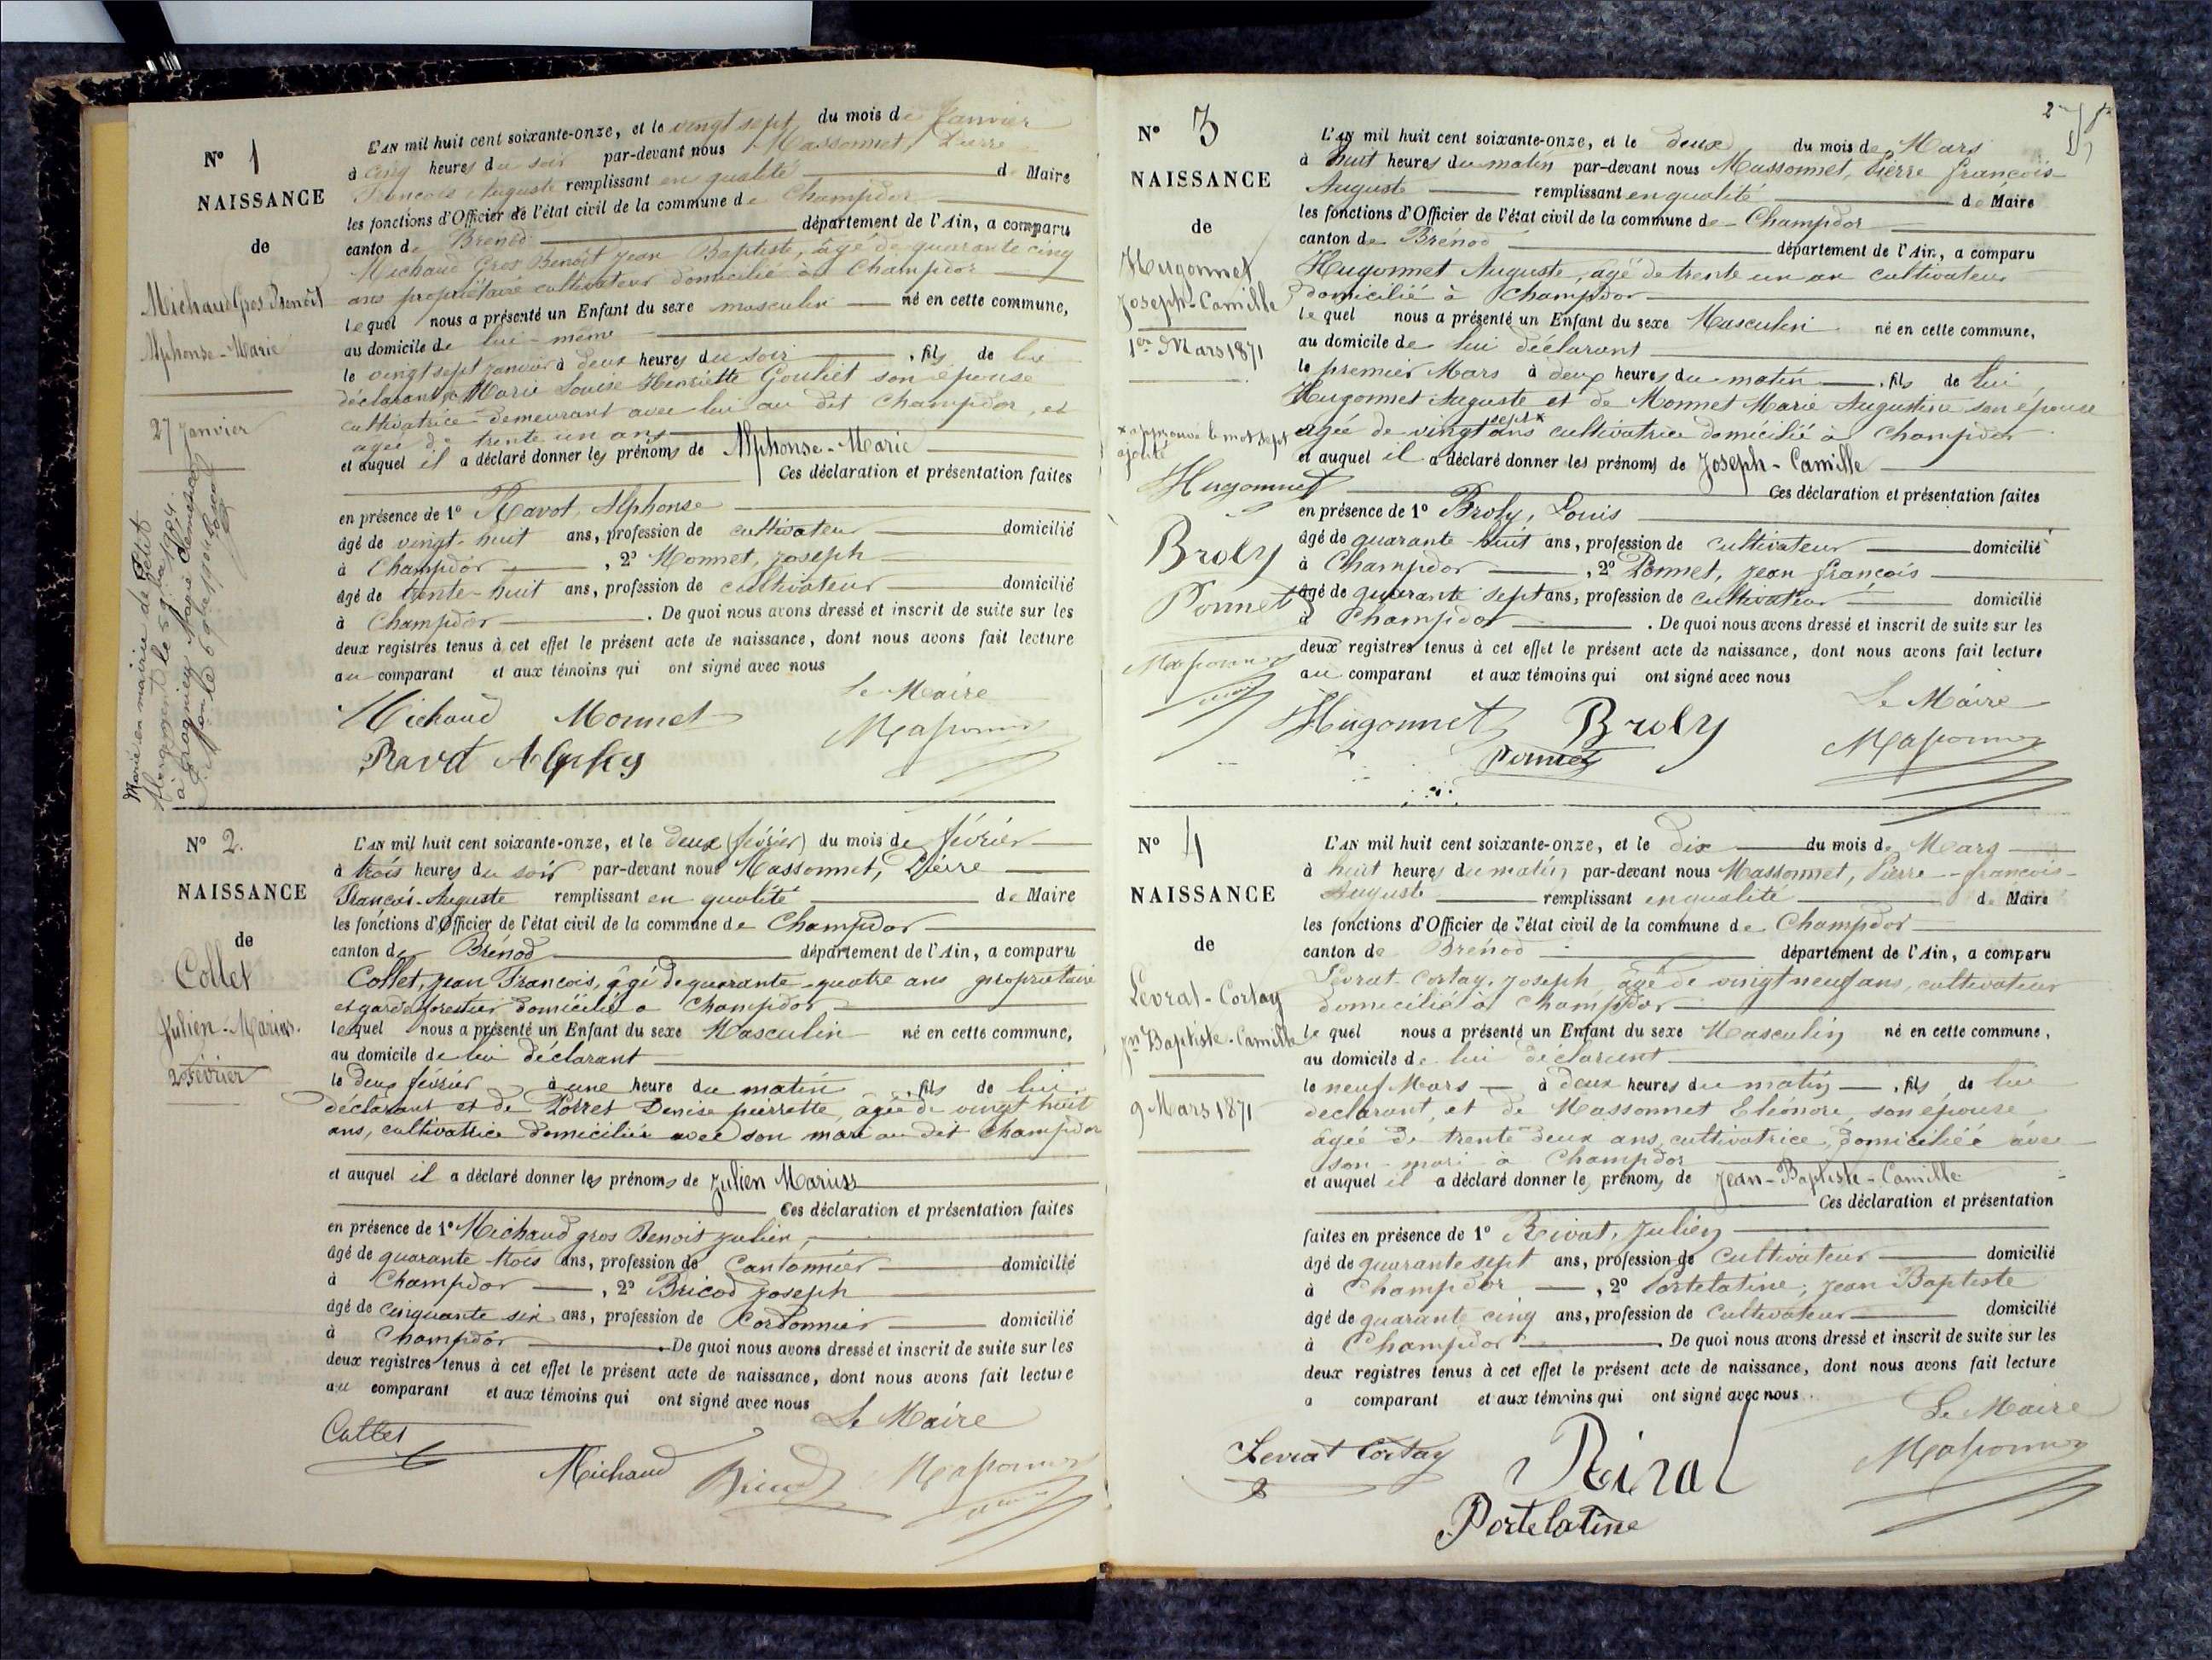 N° 1
NAISSANCE
de
Michaud Gros Benoît
Alphonse-Marie
27 Janvier
Marié en mairie de Petit
Abergement le 5 9bre 1904
à Marie
L'AN mil huit cent soixante-onze, et le vingt sept du mois de Janvier
à cinq heures du soir par-devant nous Massonnet, Pierre
François Auguste remplissant en qualité de Maire
les fonctions d'Officier de l'état civil de la commune de Champdor
canton de Brénod département de l'Ain, a comparu
Michaud Gros Benoît Jean Baptiste, âgé de quarante cinq
ans propriétaire cultivateur domicilié à Champdor
lequel nous a présenté un Enfant du sexe masculin né en cette commune,
au domicile de lui-même
le vingt sept Janvier à deux heures du soir, fils de lui
déclarant & Marie Louise Henriette Gouliet son épouse
cultivatrice demeurant avec lui au dit Champdor, et
agée de trente un ans
et auquel il a déclaré donner les prénoms de Alphonse-Marie
Ces déclaration et présentation faites
en présence de 1° Ravot, Alphonse
âgé de vingt-huit ans, profession de cultivateur domicilié
à Champdor, 2° Monnet, Joseph
âgé de trente-huit ans, profession de cultivateur domicilié
à Champdor. De quoi nous avons dressé et inscrit de suite sur les
deux registres tenus à cet effet le présent acte de naissance, dont nous avons fait lecture
au comparant et aux témoins qui ont signé avec nous
Le Maire
Michaud Monnet Massonnet
Ravot
N° 2.
NAISSANCE
de
Collet
Julien-Marius.
2 Février
L'AN mil huit cent soixante-onze, et le deux (février) du mois de février
à trois heures du soir par-devant nous Massonnet, Pierre
François-Auguste remplissant en qualité de Maire
les fonctions d'Officier de l'état civil de la commune de Champdor
canton de Brénod département de l'Ain, a comparu
Collet, Jean François, âgé de quarante-quatre ans propriétaire
et garde forestier domicilié à Champdor
lequel nous a présenté un Enfant du sexe Masculin né en cette commune,
au domicile de lui déclarant
le deux février à une heure du matin, fils de lui
déclarant et de Porret Denise pierrette, âgée de vingt huit
ans, cultivatrice domiciliée avec son mari au dit Champdor
et auquel il a déclaré donner les prénoms de Julien Marius
Ces déclaration et présentation faites
en présence de 1° Michaud gros Benoit Julien,
âgé de quarante trois ans, profession de Cantonnier domicilié
à Champdor, 2° Bricod Joseph
âgé de cinquante six ans, profession de Cordonnier domicilié
à Champdor. De quoi nous avons dressé et inscrit de suite sur les
deux registres tenus à cet effet le présent acte de naissance, dont nous avons fait lecture
au comparant et aux témoins qui ont signé avec nous
Le Maire
Collet
Michaud Bricod Massonnet
2
N° 3
NAISSANCE
de
Hugonnet
Joseph-Camille
1er Mars 1871
x approuvé le mot sept
ajouté
Hugonnet
Broly
Ponnet
Massonnet
L'AN mil huit cent soixante-onze, et le deux du mois de Mars
à huit heures du matin par-devant nous Massonnet, Pierre François
Auguste remplissant en qualité de Maire
les fonctions d'Officier de l'état civil de la commune de Champdor
canton de Brénod département de l'Ain, a comparu
Hugonnet Auguste, âgé de trente un an cultivateur
domicilié à Champdor
lequel nous a présenté un Enfant du sexe Masculin né en cette commune,
au domicile de lui déclarant
le premier Mars à deux heures du matin, fils de lui
Hugonnet Auguste et de Monnet Marie Augustine son épouse
agée de vingt sept x ans cultivatrice domicilié à Champdor
et auquel il a déclaré donner les prénoms de Joseph-Camille
Ces déclaration et présentation faites
en présence de 1° Broly, Louis
âgé de quarante-huit ans, profession de cultivateur domicilié
à Champdor, 2° Ponnet, Jean françois
âgé de quarante sept ans, profession de cultivateur domicilié
à Champdor. De quoi nous avons dressé et inscrit de suite sur les
deux registres tenus à cet effet le présent acte de naissance, dont nous avons fait lecture
au comparant et aux témoins qui ont signé avec nous
Le Maire
Hugonnet Broly Massonnet
Ponnet
N° 4
NAISSANCE
de
Levrat-Cortay
Jn Baptiste-Camille
9 Mars 1871
L'AN mil huit cent soixante-onze, et le dix du mois de Mars
à huit heures du matin par-devant nous Massonnet, Pierre-françois-
Auguste remplissant en qualité de Maire
les fonctions d'Officier de l'état civil de la commune de Champdor
canton de Brénod département de l'Ain, a comparu
Levrat-Cortay, Joseph, âgé de vingt neuf ans, cultivateur
domicilié à Champdor
lequel nous a présenté un Enfant du sexe Masculin né en cette commune,
au domicile de lui déclarant
le neuf Mars à deux heures du matin, fils de lui
déclarant, et de Massonnet Eléonore, son épouse
âgée de trente deux ans, cultivatrice, domiciliée avec
son mari à Champdor
et auquel il a déclaré donner les prénoms de Jean-Baptiste-Camille
Ces déclaration et présentation
faites en présence de 1° Rivat, Julien
âgé de quarante sept ans, profession de Cultivateur domicilié
à Champdor, 2° Portelatine, Jean Baptiste
âgé de quarante cinq ans, profession de Cultivateur domicilié
à Champdor. De quoi nous avons dressé et inscrit de suite sur les
deux registres tenus à cet effet le présent acte de naissance, dont nous avons fait lecture
a comparant et aux témoins qui ont signé avec nous.
Le Maire
Levrat Cortay Rivat Massonnet
Portelatine